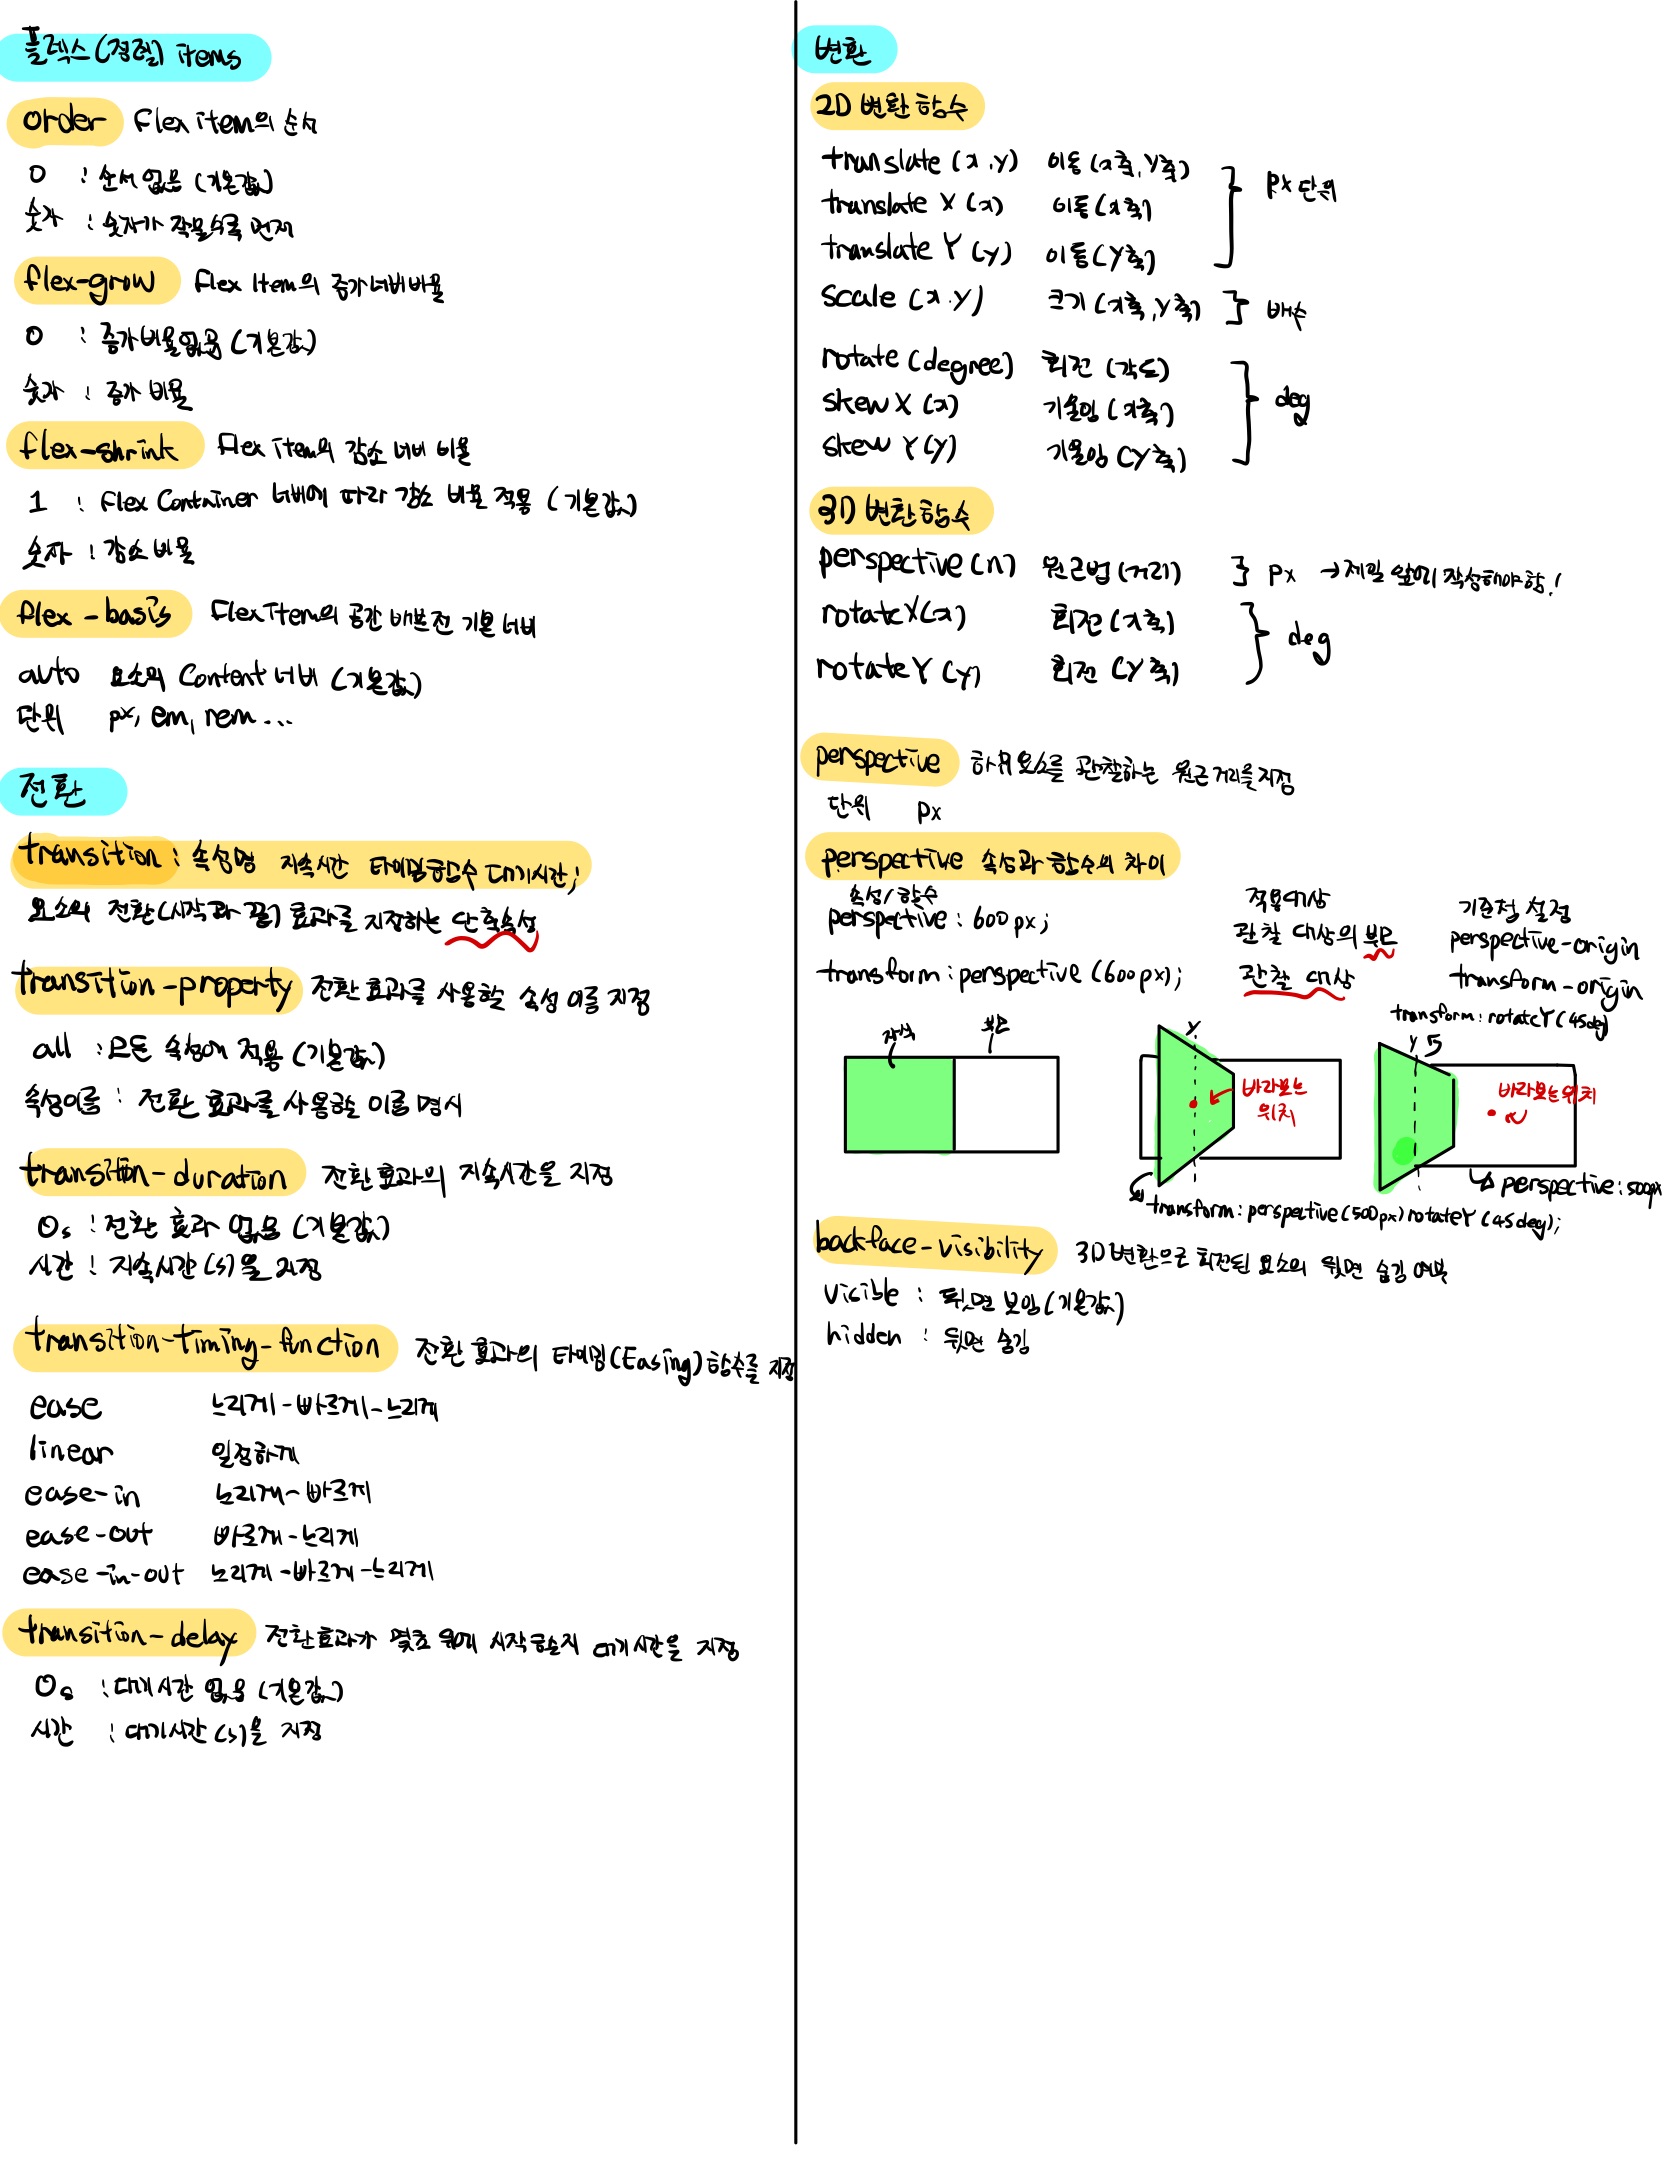 플렉스(정렬) items
order Flex item의 순서
0 : 순서 없음 (기본값)
숫자 : 숫자가 작을수록 먼저
flex-grow Flex Item의 증가 너비 비율
0 : 증가비율없음 (기본값)
숫자 : 증가 비율
flex-shrink Flex Item의 감소 너비 비율
1 : Flex Container 너비에 따라 감소 비율 적용 (기본값)
숫자 : 감소 비율
flex-basis Flex Item의 공간 배분전 기본 너비
auto 요소의 Content 너비 (기본값)
단위 px, em, rem...
전환
transition : 속성명 지속시간 타이밍함수 대기시간;
요소의 전환(시작과 끝) 효과를 지정하는 단축속성
transition-property 전환 효과를 사용할 속성 이름 지정
all : 모든 속성에 적용 (기본값)
속성이름 : 전환 효과를 사용하는 이름 명시
transition-duration 전환 효과의 지속시간을 지정
0s : 전환 효과 없음 (기본값)
시간 : 지속시간(s)을 지정
transition-timing-function 전환 효과의 타이밍(Easing) 함수를 지정
ease 느리게-빠르게-느리게
linear 일정하게
ease-in 느리게-빠르게
ease-out 빠르게-느리게
ease-in-out 느리게-빠르게-느리게
transition-delay 전환효과가 몇초 뒤에 시작할지 대기시간을 지정
0s : 대기시간 없음 (기본값)
시간 : 대기시간(s)을 지정
변환
2D 변환 함수
translate (x,y) 이동 (x축, Y축)
translate X (x) 이동 (x축)
translate Y (y) 이동 (Y축)
px 단위
scale (x.y) 크기 (x축, Y축) 배수
rotate (degree) 회전 (각도)
skew X (x) 기울임 (x축)
skew Y (y) 기울임 (Y축)
deg
3D 변환함수
perspective (n) 원근법 (거리) px → 제일 앞에 작성해야 함!
rotate X(x) 회전 (x축)
rotate Y (y) 회전 (Y축)
deg
perspective 하위요소를 관찰하는 원근 거리를 지정
단위 px
perspective 속성과 함수의 차이
속성/함수 적용대상 기준점 설정
perspective : 600px; 관찰 대상의 부모 perspective-origin
transform : perspective (600px); 관찰 대상 transform-origin
transform : rotateY (45deg)
자식 부모
Y
바라보는
위치
Y
바라보는위치
perspective : 500px
transform : perspective (500px) rotateY (45deg);
backface-visibility 3D 변환으로 회전된 요소의 뒷면 숨김 여부
visible : 뒷면 보임 (기본값)
hidden : 뒷면 숨김